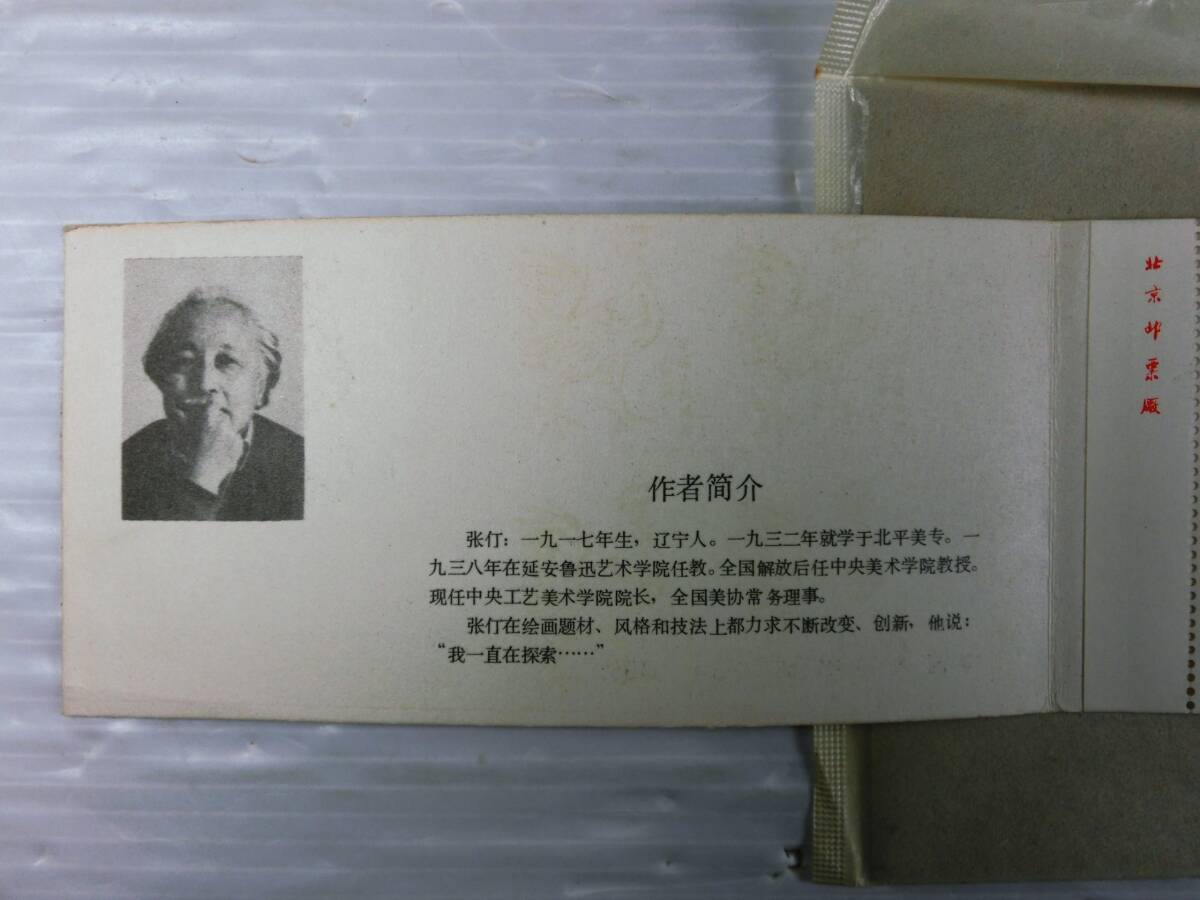 作者简介
张仃：一九一七年生，辽宁人。一九三二年就学于北平美专。一
九三八年在延安鲁迅艺术学院任教。全国解放后任中央美术学院教授。
现任中央工艺美术学院院长，全国美协常务理事。
张仃在绘画题材、风格和技法上都力求不断改变、创新，他说：
“我一直在探索……”
北京邮票厂